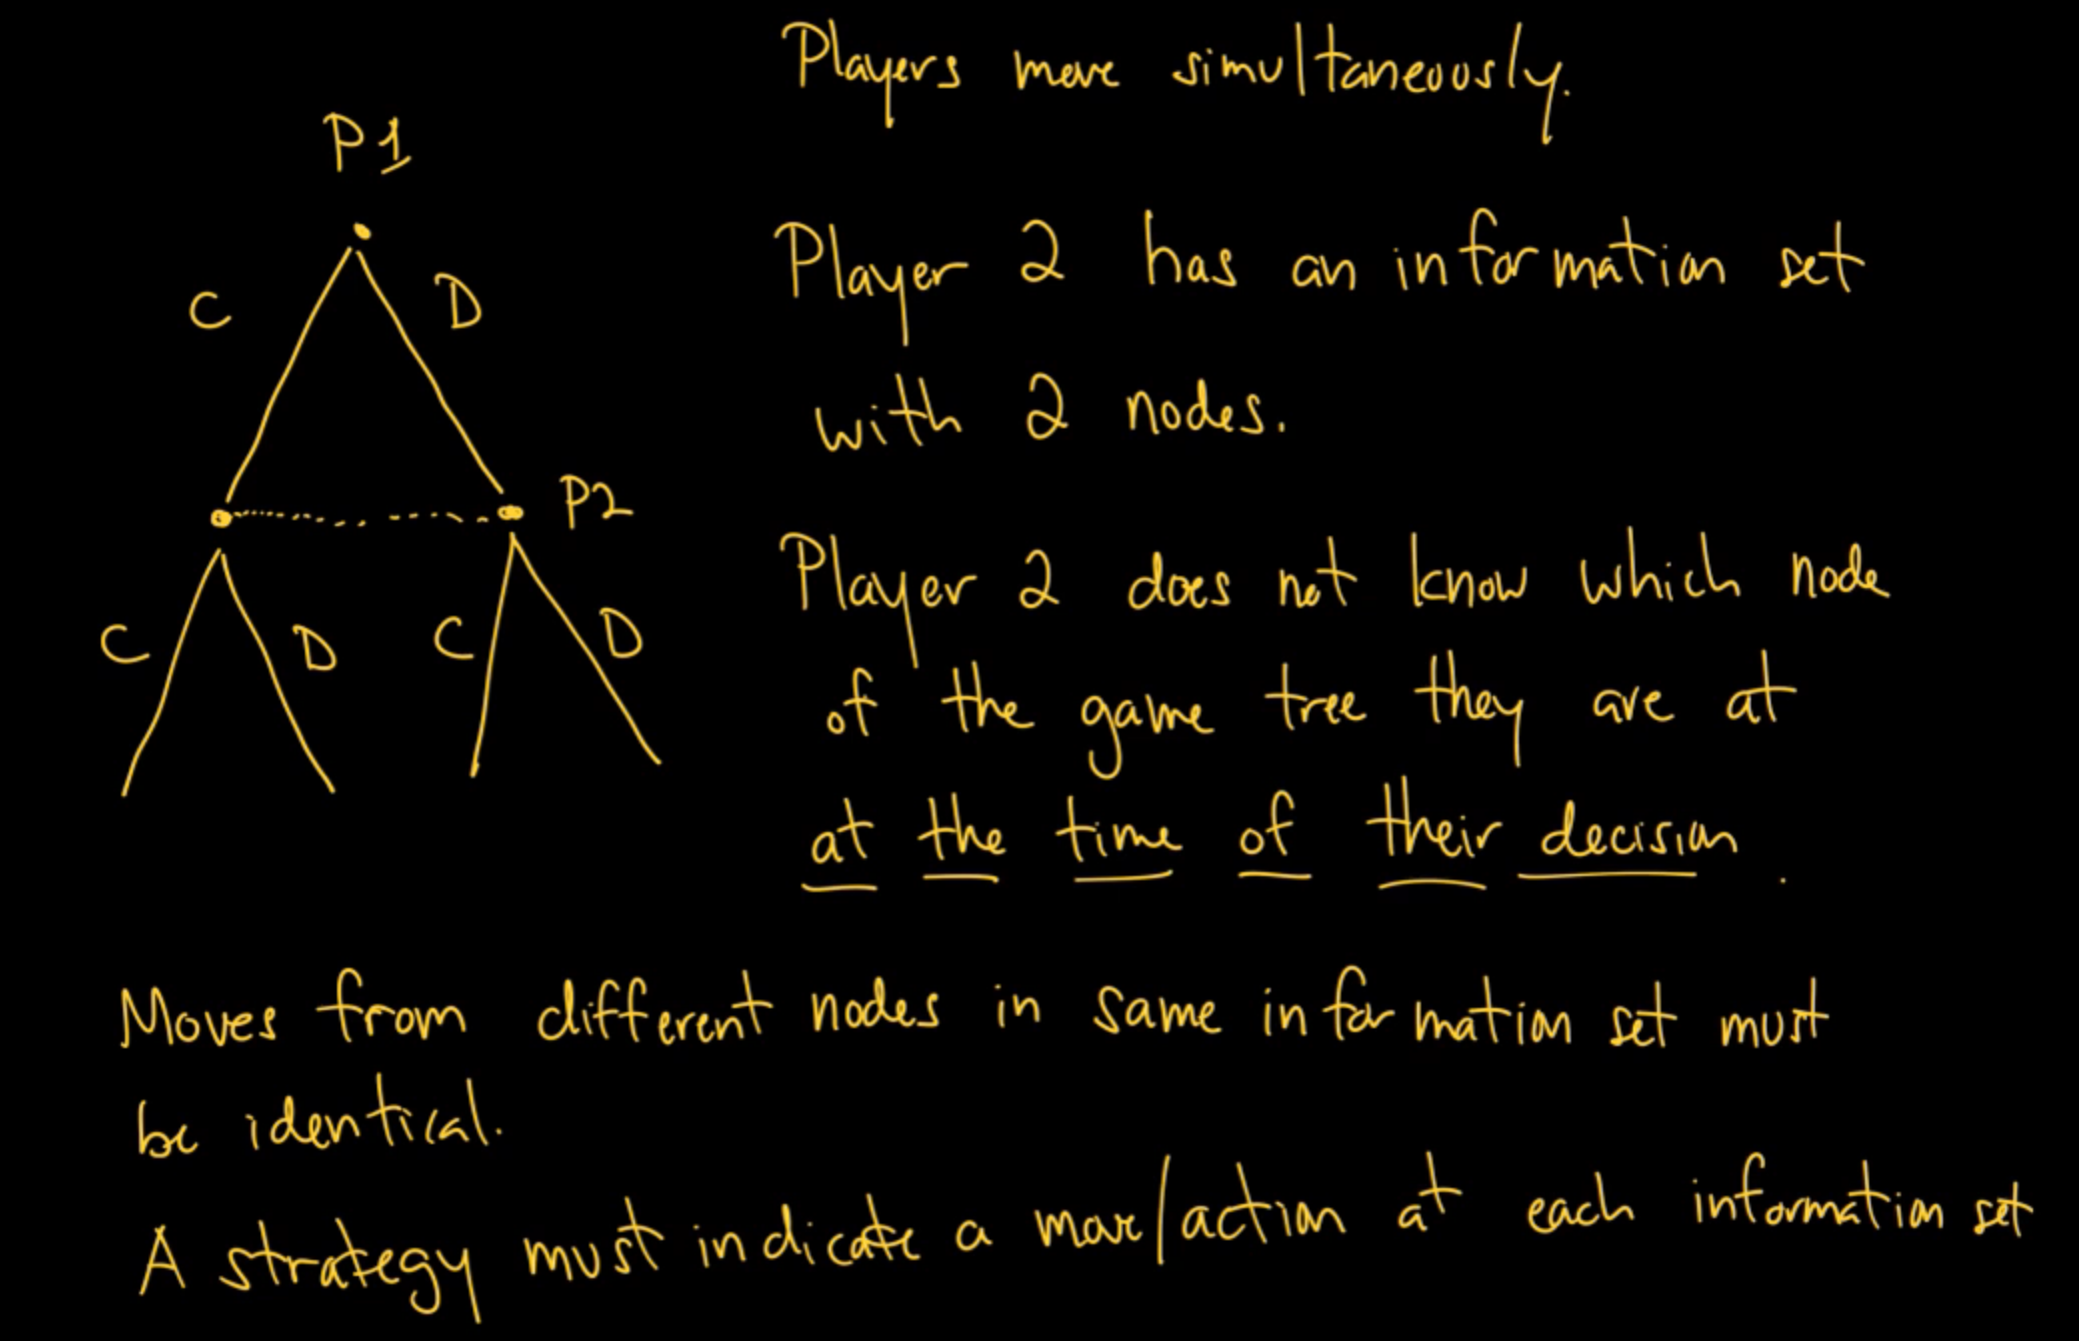 Players move simultaneously.
P1
C D
Player 2 has an information set
with 2 nodes.
P2
Player 2 does not know which node
C D C D
of the game tree they are at
at the time of their decision.
Moves from different nodes in same information set must
be identical.
A strategy must indicate a move/action at each information set